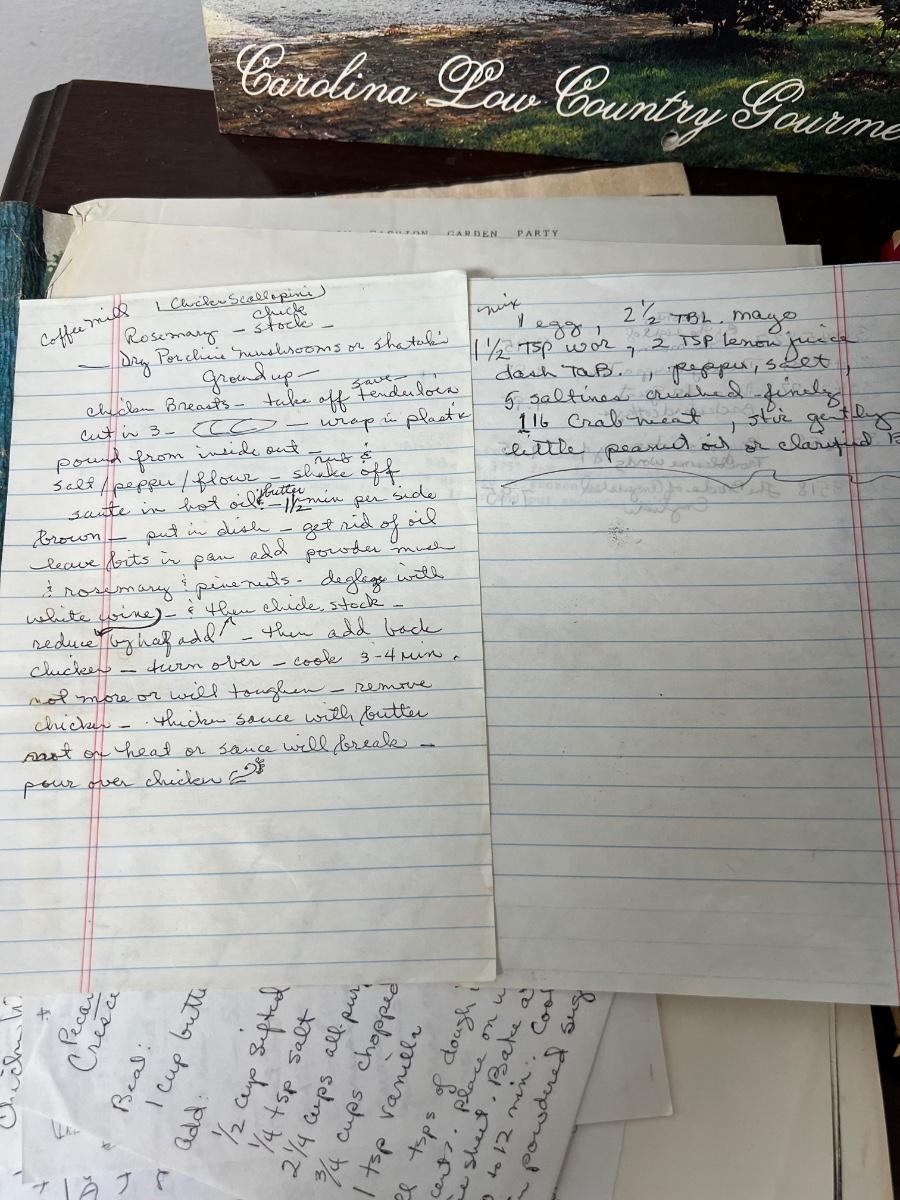 Carolina Low Country Gourme
GARDEN PARTY
coffee mill (Chicken Scallopini)
Rosemary - chick stock -
- Dry Porchini mushrooms or shataki
Ground up -
save
chicken Breasts - take off tenderloin
cut in 3 - - wrap in plastic
pound from inside out - rub &
salt/pepper/flour - shake off
saute in hot oil & butter - 1 1/2 min per side
brown - put in dish - get rid of oil
leave bits in pan add powder mush
& rosemary & pinenuts - deglaze with
white wine - & then chick stock -
reduce by half add - then add back
chicken - turn over - cook 3-4 min.
not more or will toughen - remove
chicken - thicken sauce with butter
not on heat or sauce will break -
pour over chicken
mix
1 egg, 2 1/2 TBL. mayo
1 1/2 TSP wor, 2 TSP lemon juice
dash TAB., pepper, salt,
5 saltines crushed finely
1 lb Crab meat, stir gently
little peanut oil or clarified B
Pecan
Cresce
Beat:
1 cup butte
add:
1/2 cup sifted
1/4 tsp salt
2 1/4 cups all pur
3/4 cups chopped
1 tsp vanilla
tsps of dough
place on u
sheet. Bake a
to 12 min. Coo
powdered sug